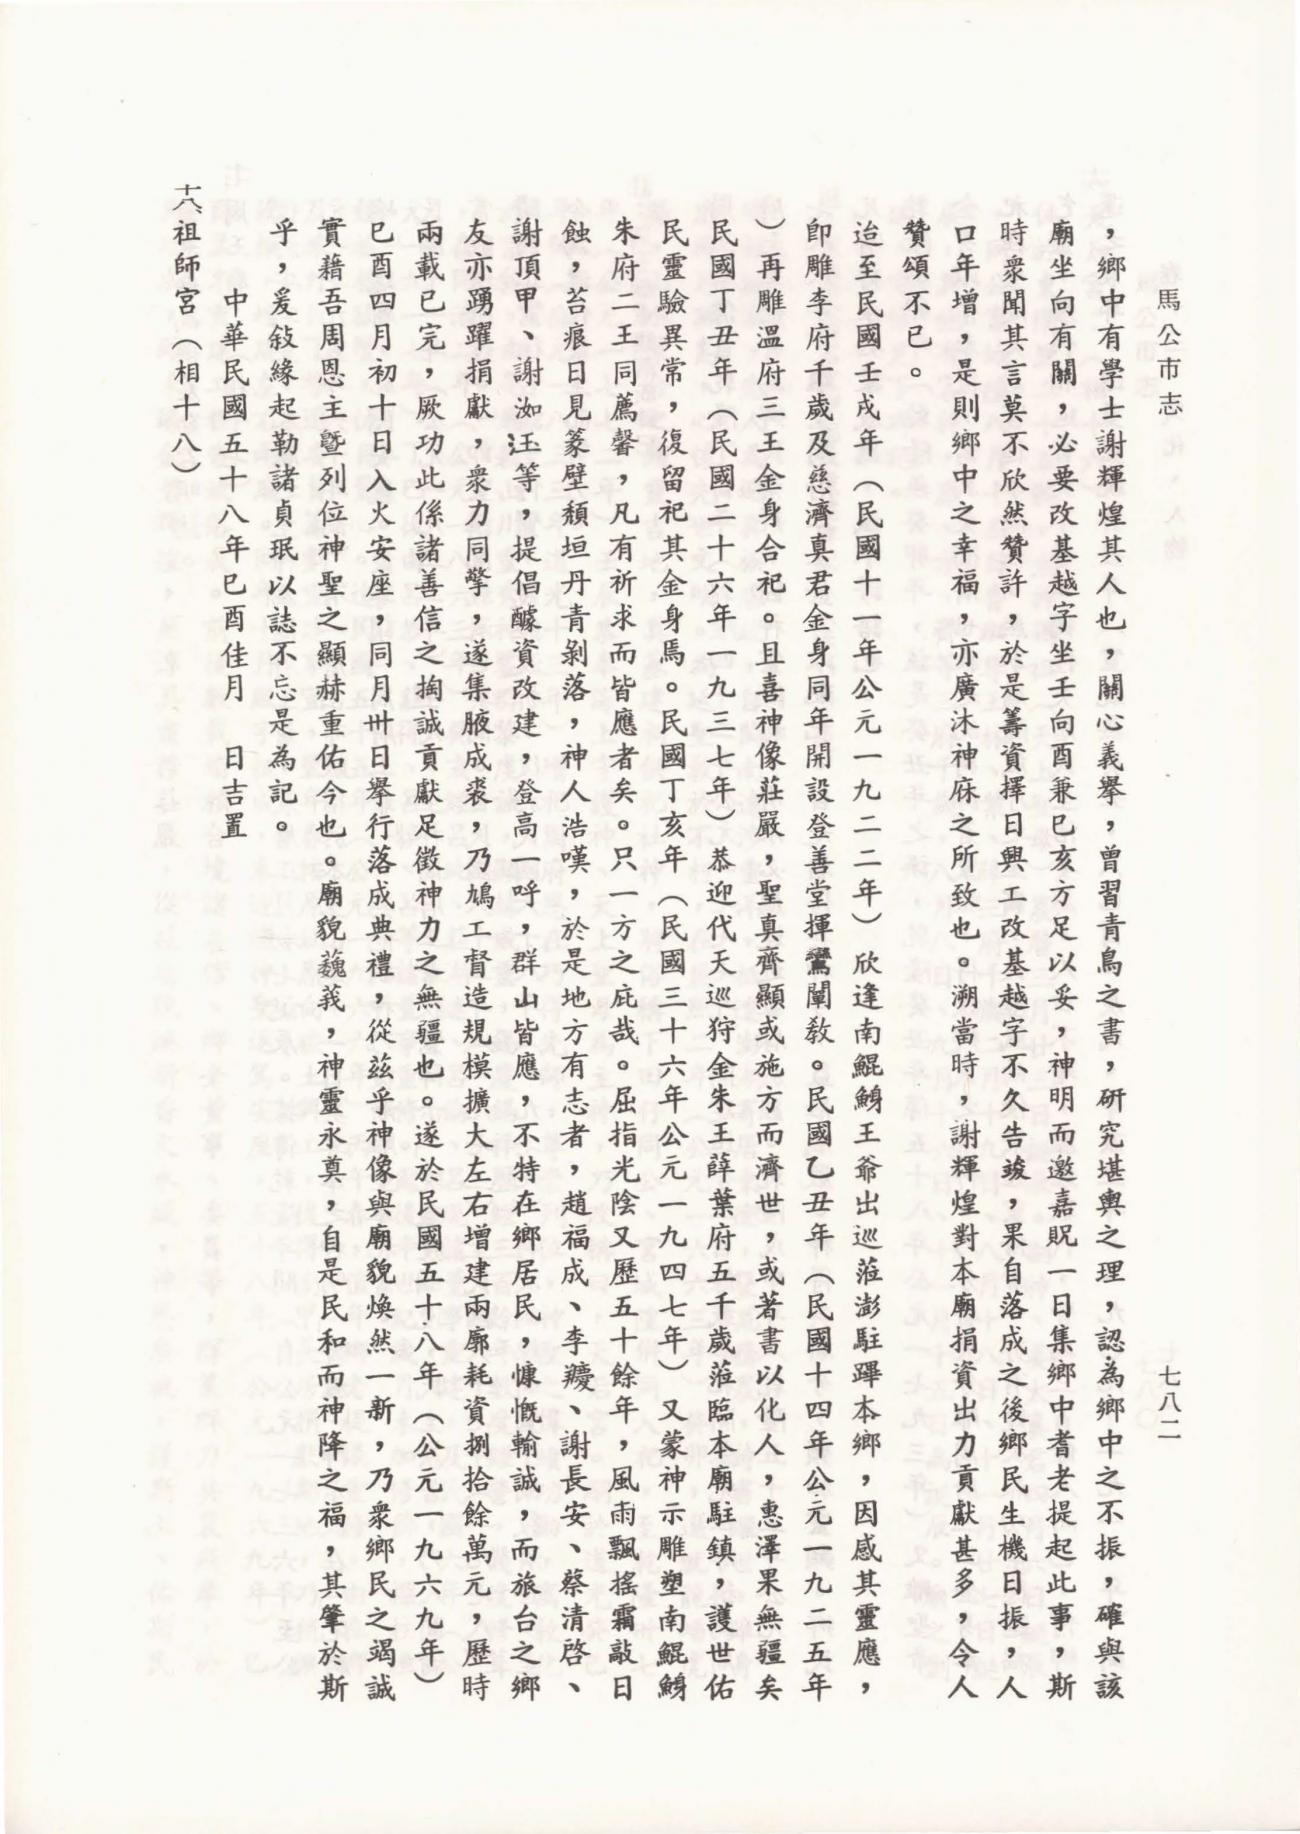 馬公市志
七八二
，鄉中有學士謝輝煌其人也，關心義擧，曾習青鳥之書，研究堪輿之理，認為鄉中之不振，確與該
廟坐向有關，必要改基越字坐壬向酉兼巳亥方足以妥，神明而邀嘉貺一日集鄉中耆老提起此事，斯
時衆聞其言莫不欣然贊許，於是籌資擇日興工改基越字不久告竣，果自落成之後鄉民生機日振，人
口年增，是則鄉中之幸福，亦廣沐神庥之所致也。溯當時，謝輝煌對本廟捐資出力貢獻甚多，令人
贊頌不已。
迨至民國壬戌年（民國十一年公元一九二二年）欣逢南鯤鯓王爺出巡蒞澎駐蹕本鄉，因感其靈應，
卽雕李府千歲及慈濟真君金身同年開設登善堂揮鸞闡敎。民國乙丑年（民國十四年公元一九二五年
）再雕溫府三王金身合祀。且喜神像莊嚴，聖真齊顯或施方而濟世，或著書以化人，惠澤果無疆矣
民國丁丑年（民國二十六年一九三七年）恭迎代天巡狩金朱王薛葉府五千歲蒞臨本廟駐鎮，護世佑
民靈驗異常，復留祀其金身馬。民國丁亥年（民國三十六年公元一九四七年）又蒙神示雕塑南鯤鯓
朱府二王同薦馨，凡有祈求而皆應者矣。只一方之庇哉。屈指光陰又歷五十餘年，風雨飄搖霜敲日
蝕，苔痕日見篆壁頹垣丹青剝落，神人浩嘆，於是地方有志者，趙福成、李䆀、謝長安、蔡清啓、
謝頂甲、謝洳汪等，提倡醵資改建，登高一呼，群山皆應，不特在鄉居民，慷慨輸誠，而旅台之鄉
友亦踴躍捐獻，衆力同擎，遂集腋成裘，乃鳩工督造規模擴大左右增建兩廓耗資捌拾餘萬元，歷時
兩載已完，厥功此係諸善信之掬誠貢獻足徵神力之無疆也。遂於民國五十八年（公元一九六九年）
巳酉四月初十日入火安座，同月卅日擧行落成典禮，從茲乎神像與廟貌煥然一新，乃衆鄉民之竭誠
實藉吾周恩主曁列位神聖之顯赫重佑今也。廟貌巍義，神靈永奠，自是民和而神降之福，其肇於斯
乎，爰敍緣起勒諸貞珉以誌不忘是為記。
中華民國五十八年巳酉佳月　日吉置
十八祖師宮（相十八）